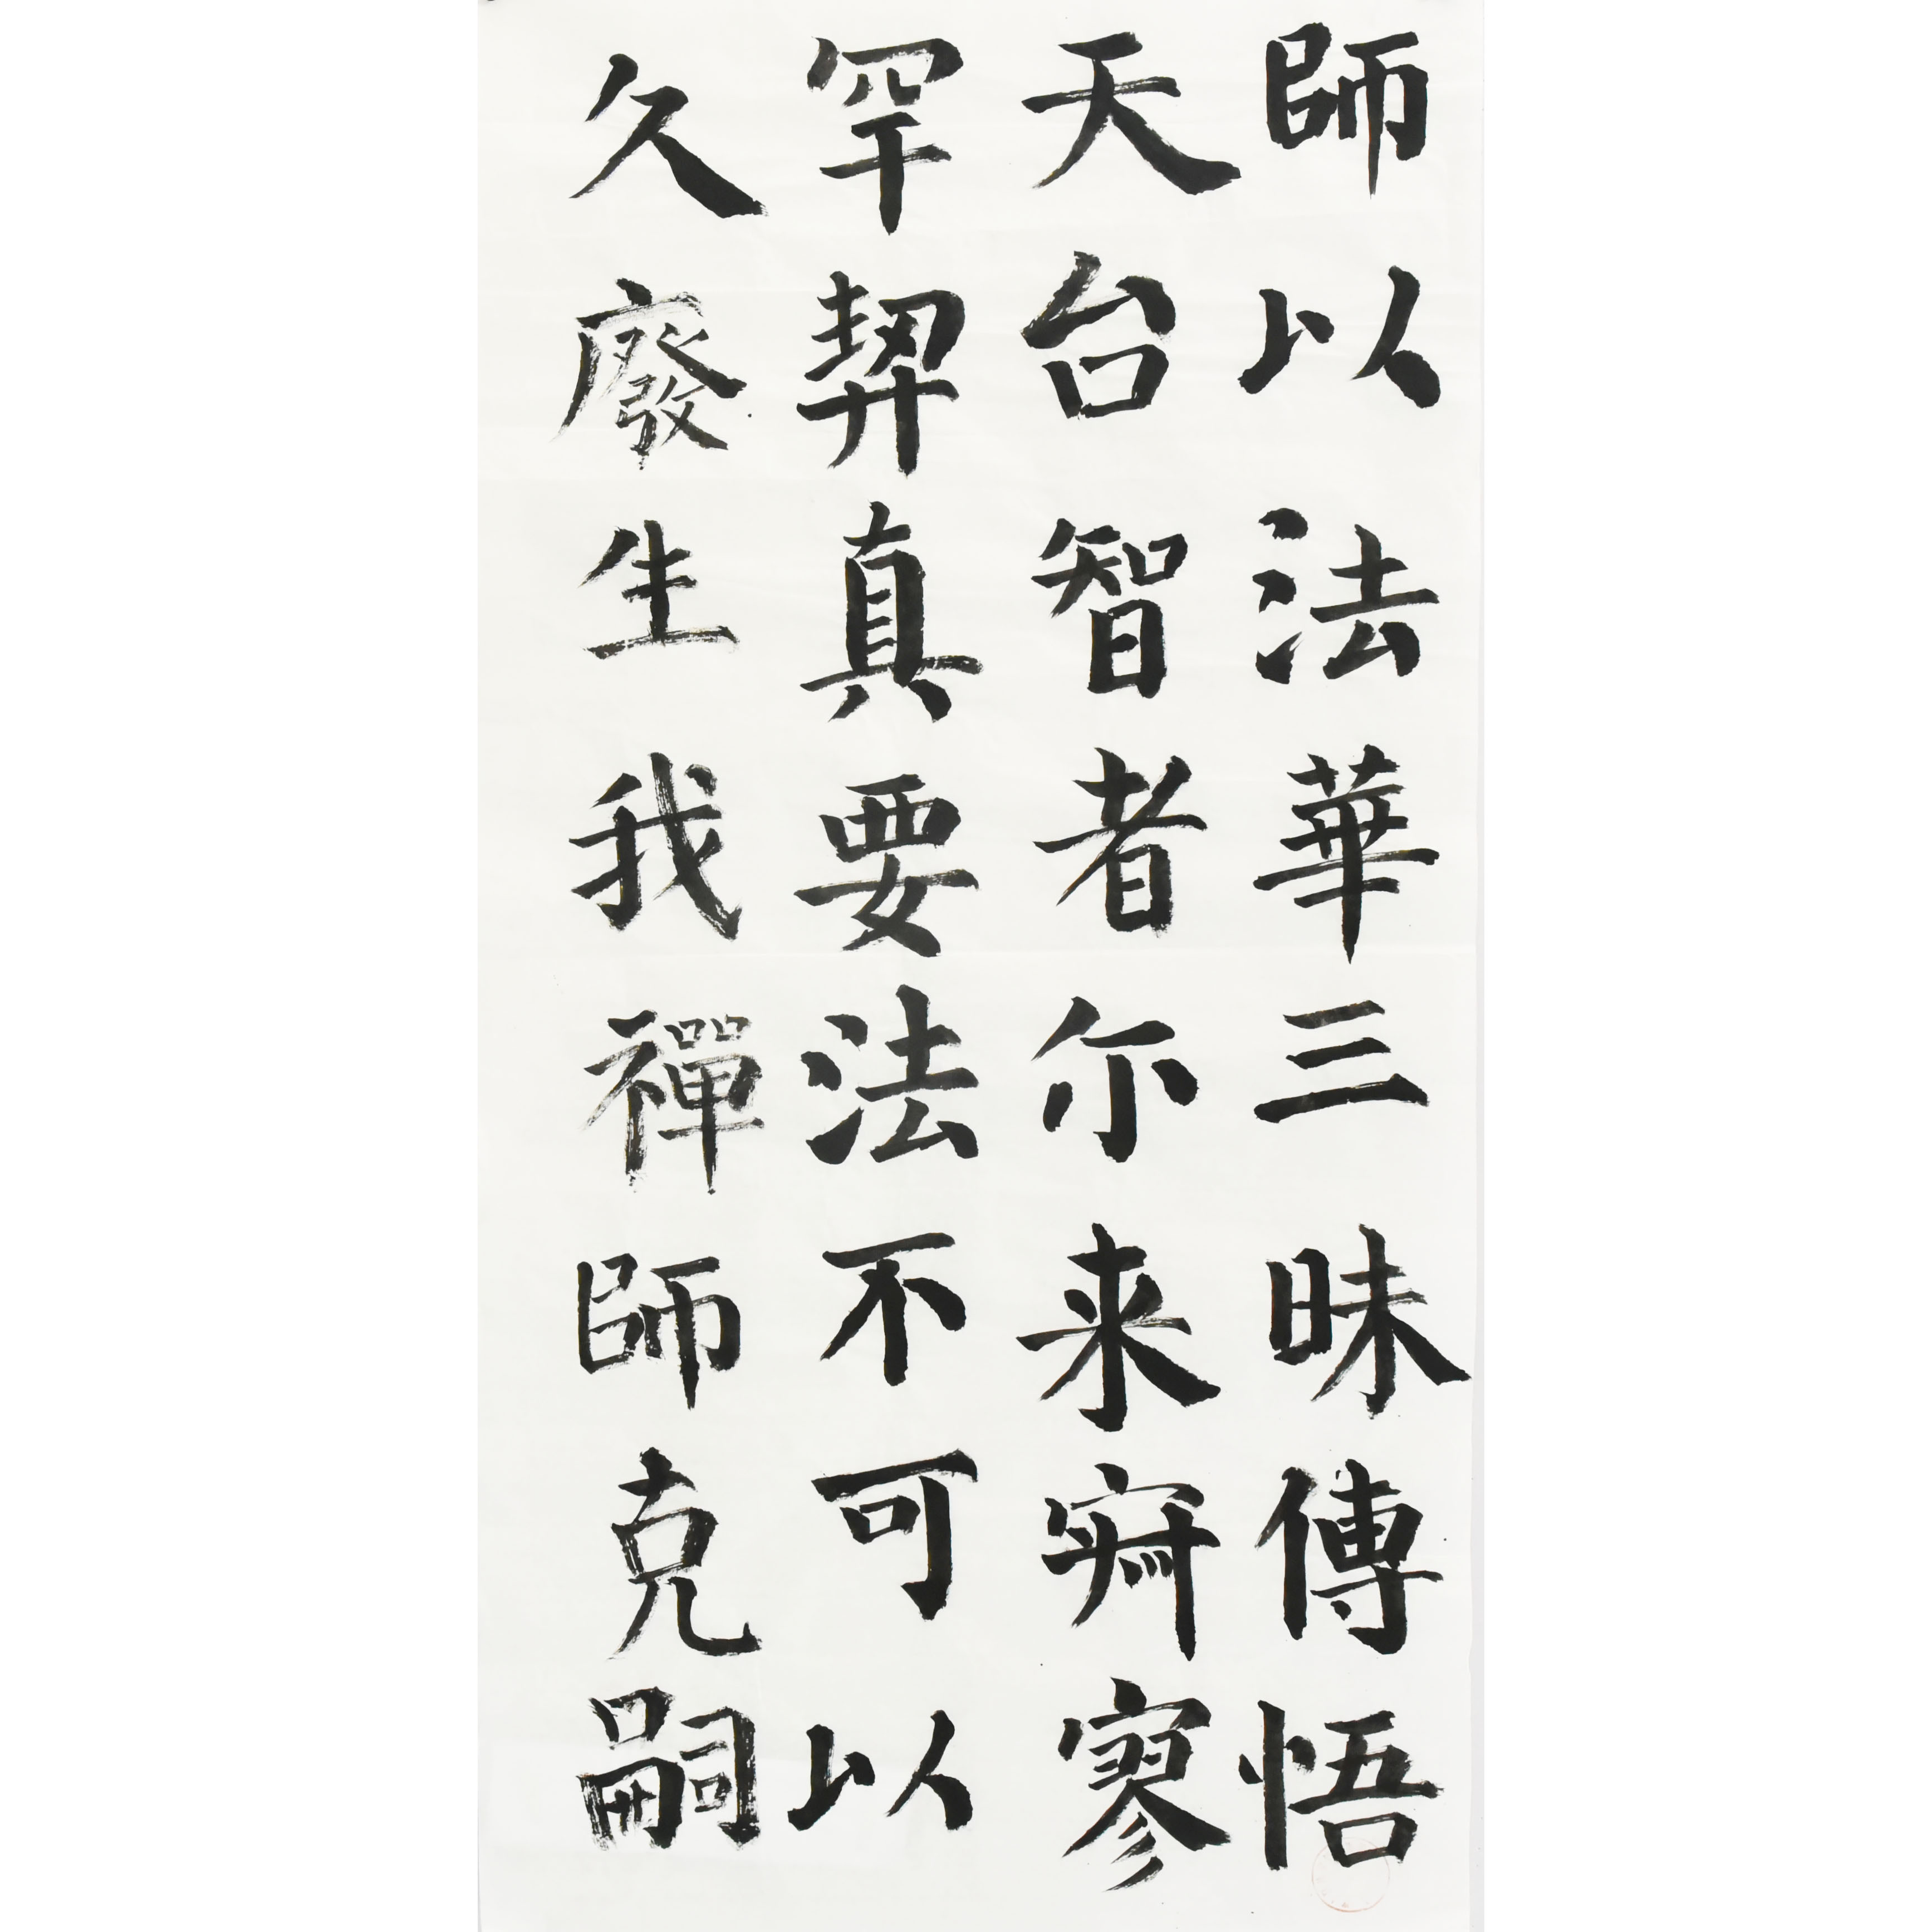 師以法華三昧傳悟
天台智者尒来㝥寥
罕契真要法不可以
久廢生我禪師克嗣